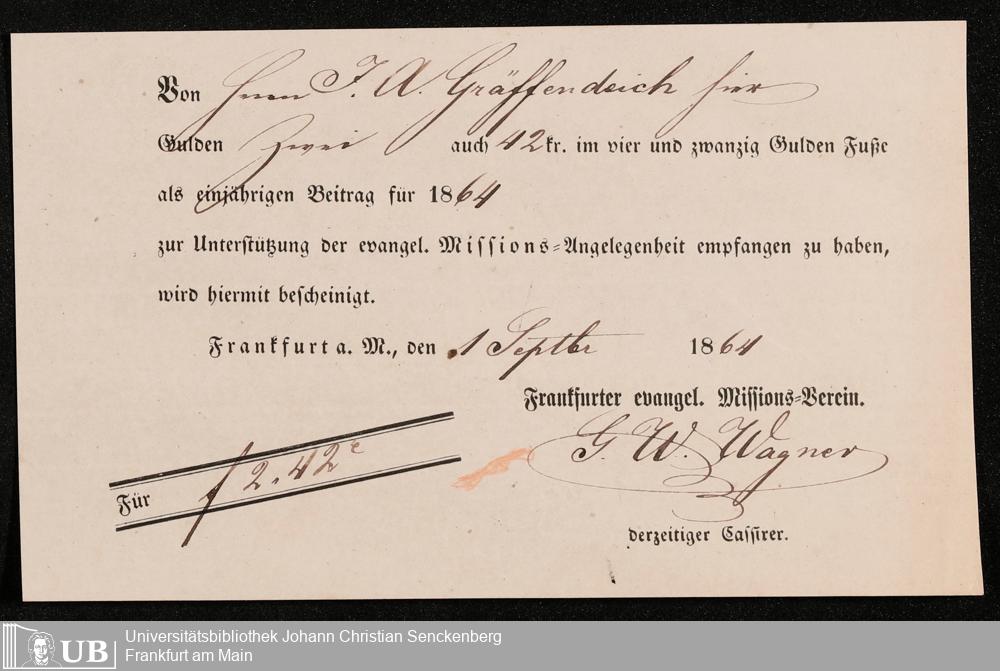 Von Herrn J. A. Gräffendeich hier
Gulden Zwei auch 42 kr. im vier und zwanzig Gulden Fuße
als einjährigen Beitrag für 1864
zur Unterstützung der evangel. Missions-Angelegenheit empfangen zu haben,
wird hiermit bescheinigt.
Frankfurt a. M., den 1 Septbr 1864
Frankfurter evangel. Missions-Verein.
G. W. Wagner
derzeitiger Cassirer.
Für f 2.42
UB Universitätsbibliothek Johann Christian Senckenberg
Frankfurt am Main